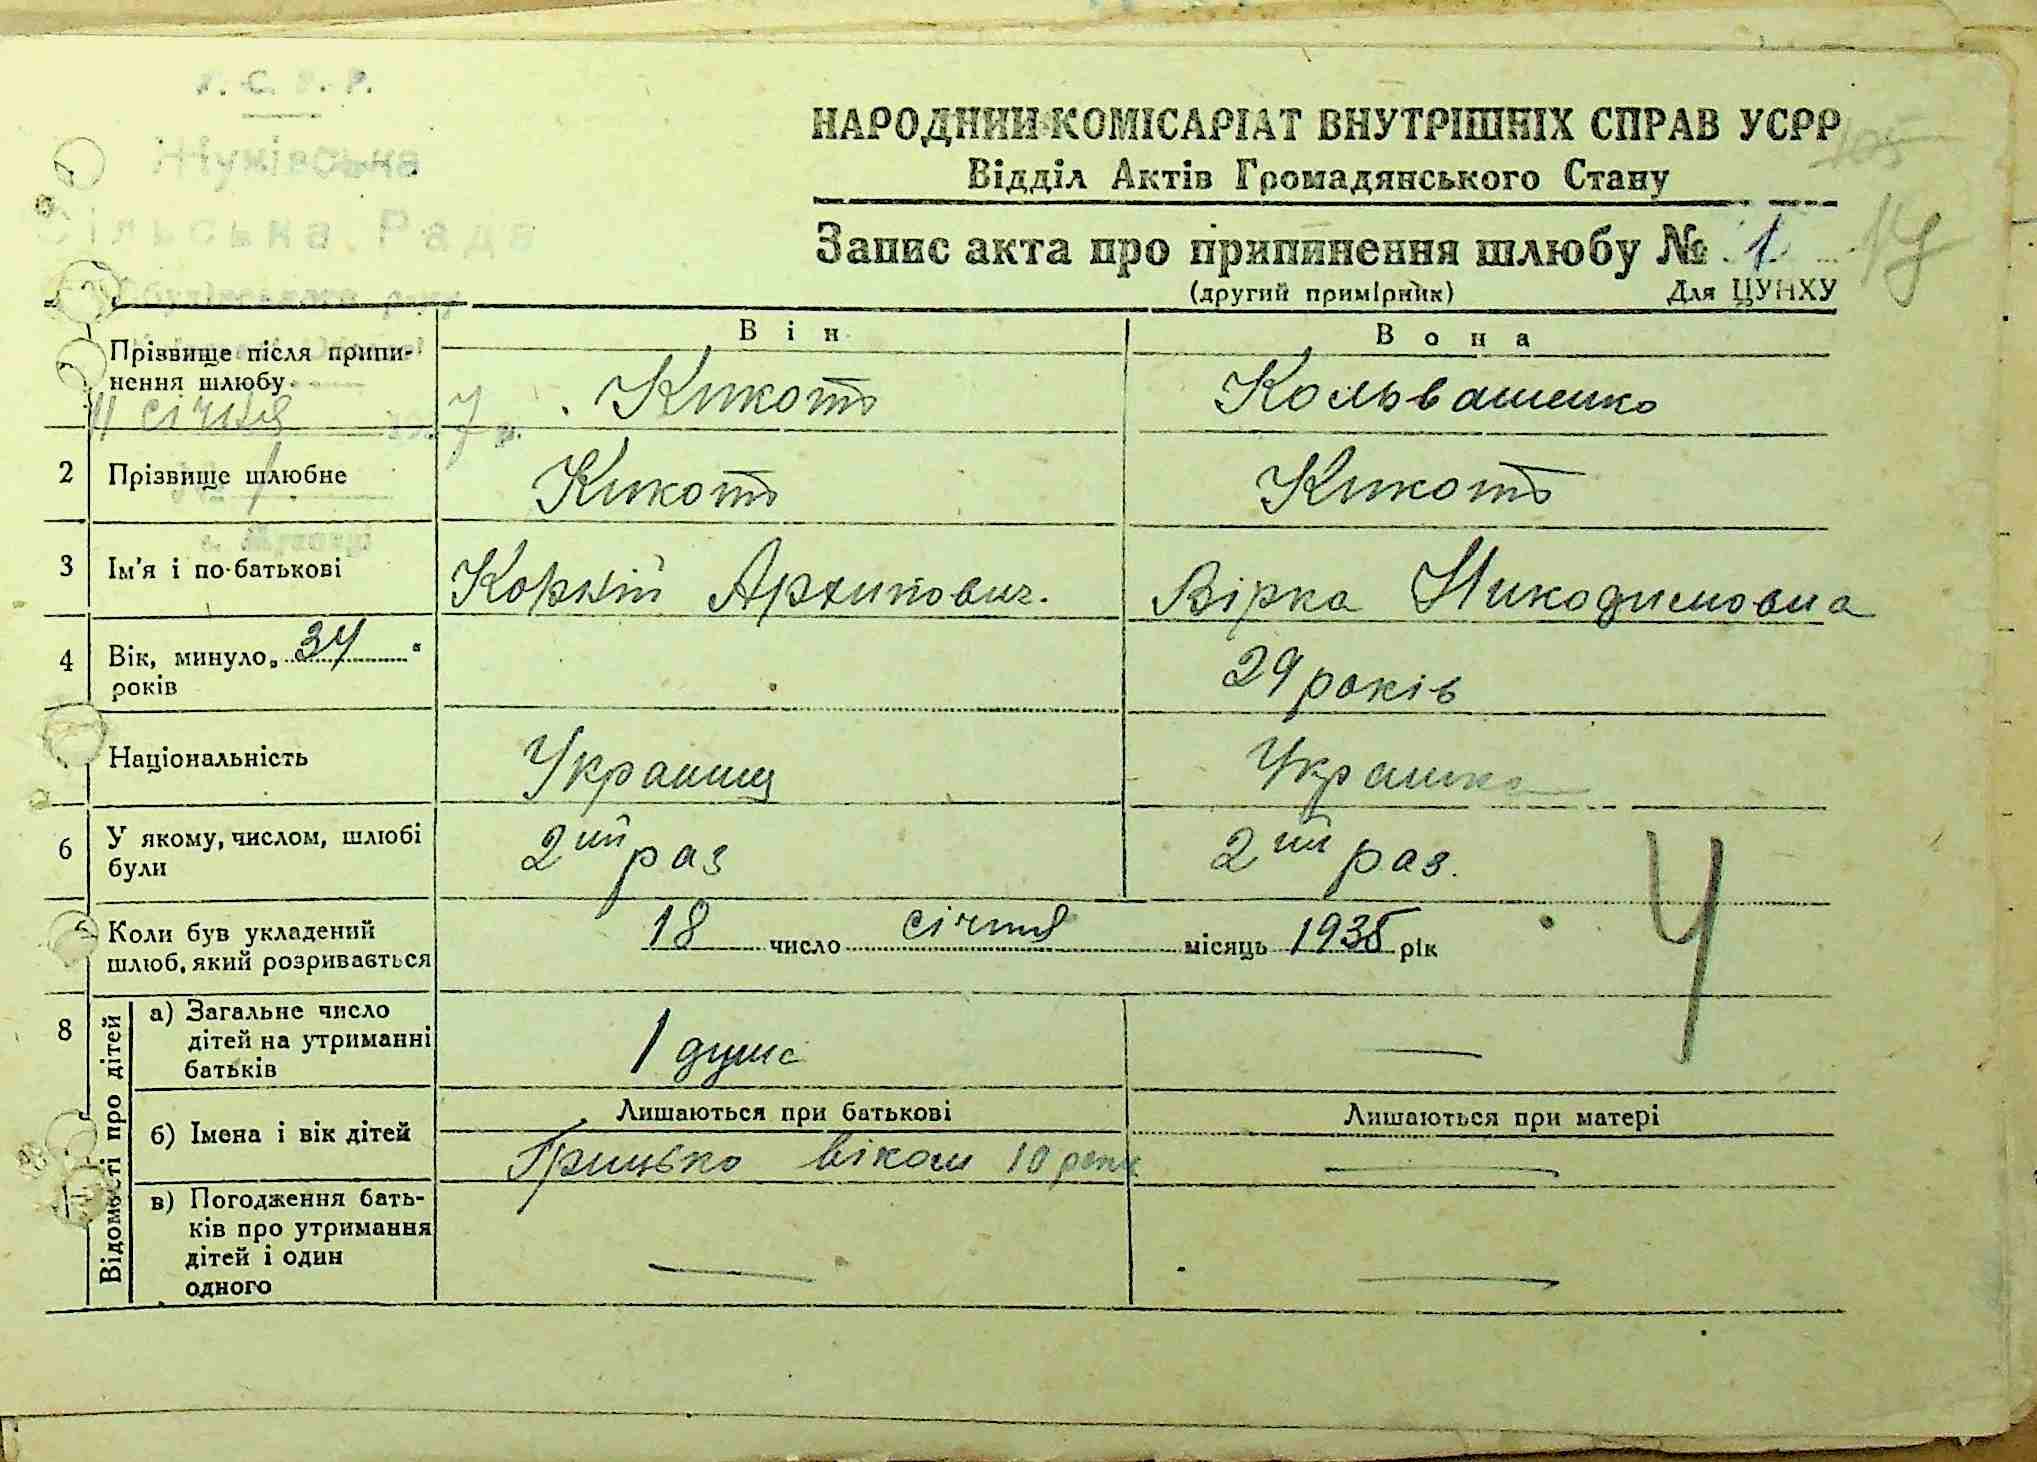 У. С. Р. Р.
Сільська Рада
НАРОДНИЙ КОМІСАРІАТ ВНУТРІШНІХ СПРАВ УСРР
105
Відділ Актів Громадянського Стану
Запис акта про припинення шлюбу № 1
(другий примірник) Для ЦУНХУ
Він Вона
Прізвище після припи-
нення шлюбу
Кикоть Кольвашенко
11 січня 7 р.
2 Прізвище шлюбне Кикоть Кикоть
№ 1
3 Ім'я і по-батькові Корній Архипович. Вірка Никодимовна
4 Вік, минуло 34
років
29 років
Національність Украинц Украинка
6 У якому, числом, шлюбі
були
2ий раз 2ий раз.
Коли був укладений
шлюб, який розривається
18 число січня місяць 1935 рік
Ч
8 Відомості про дітей
а) Загальне число
дітей на утриманні
батьків
1 душа —
Лишаються при батькові Лишаються при матері
б) Імена і вік дітей Грицько віком 10 роки —
в) Погодження бать-
ків про утримання
дітей і один
одного
— —